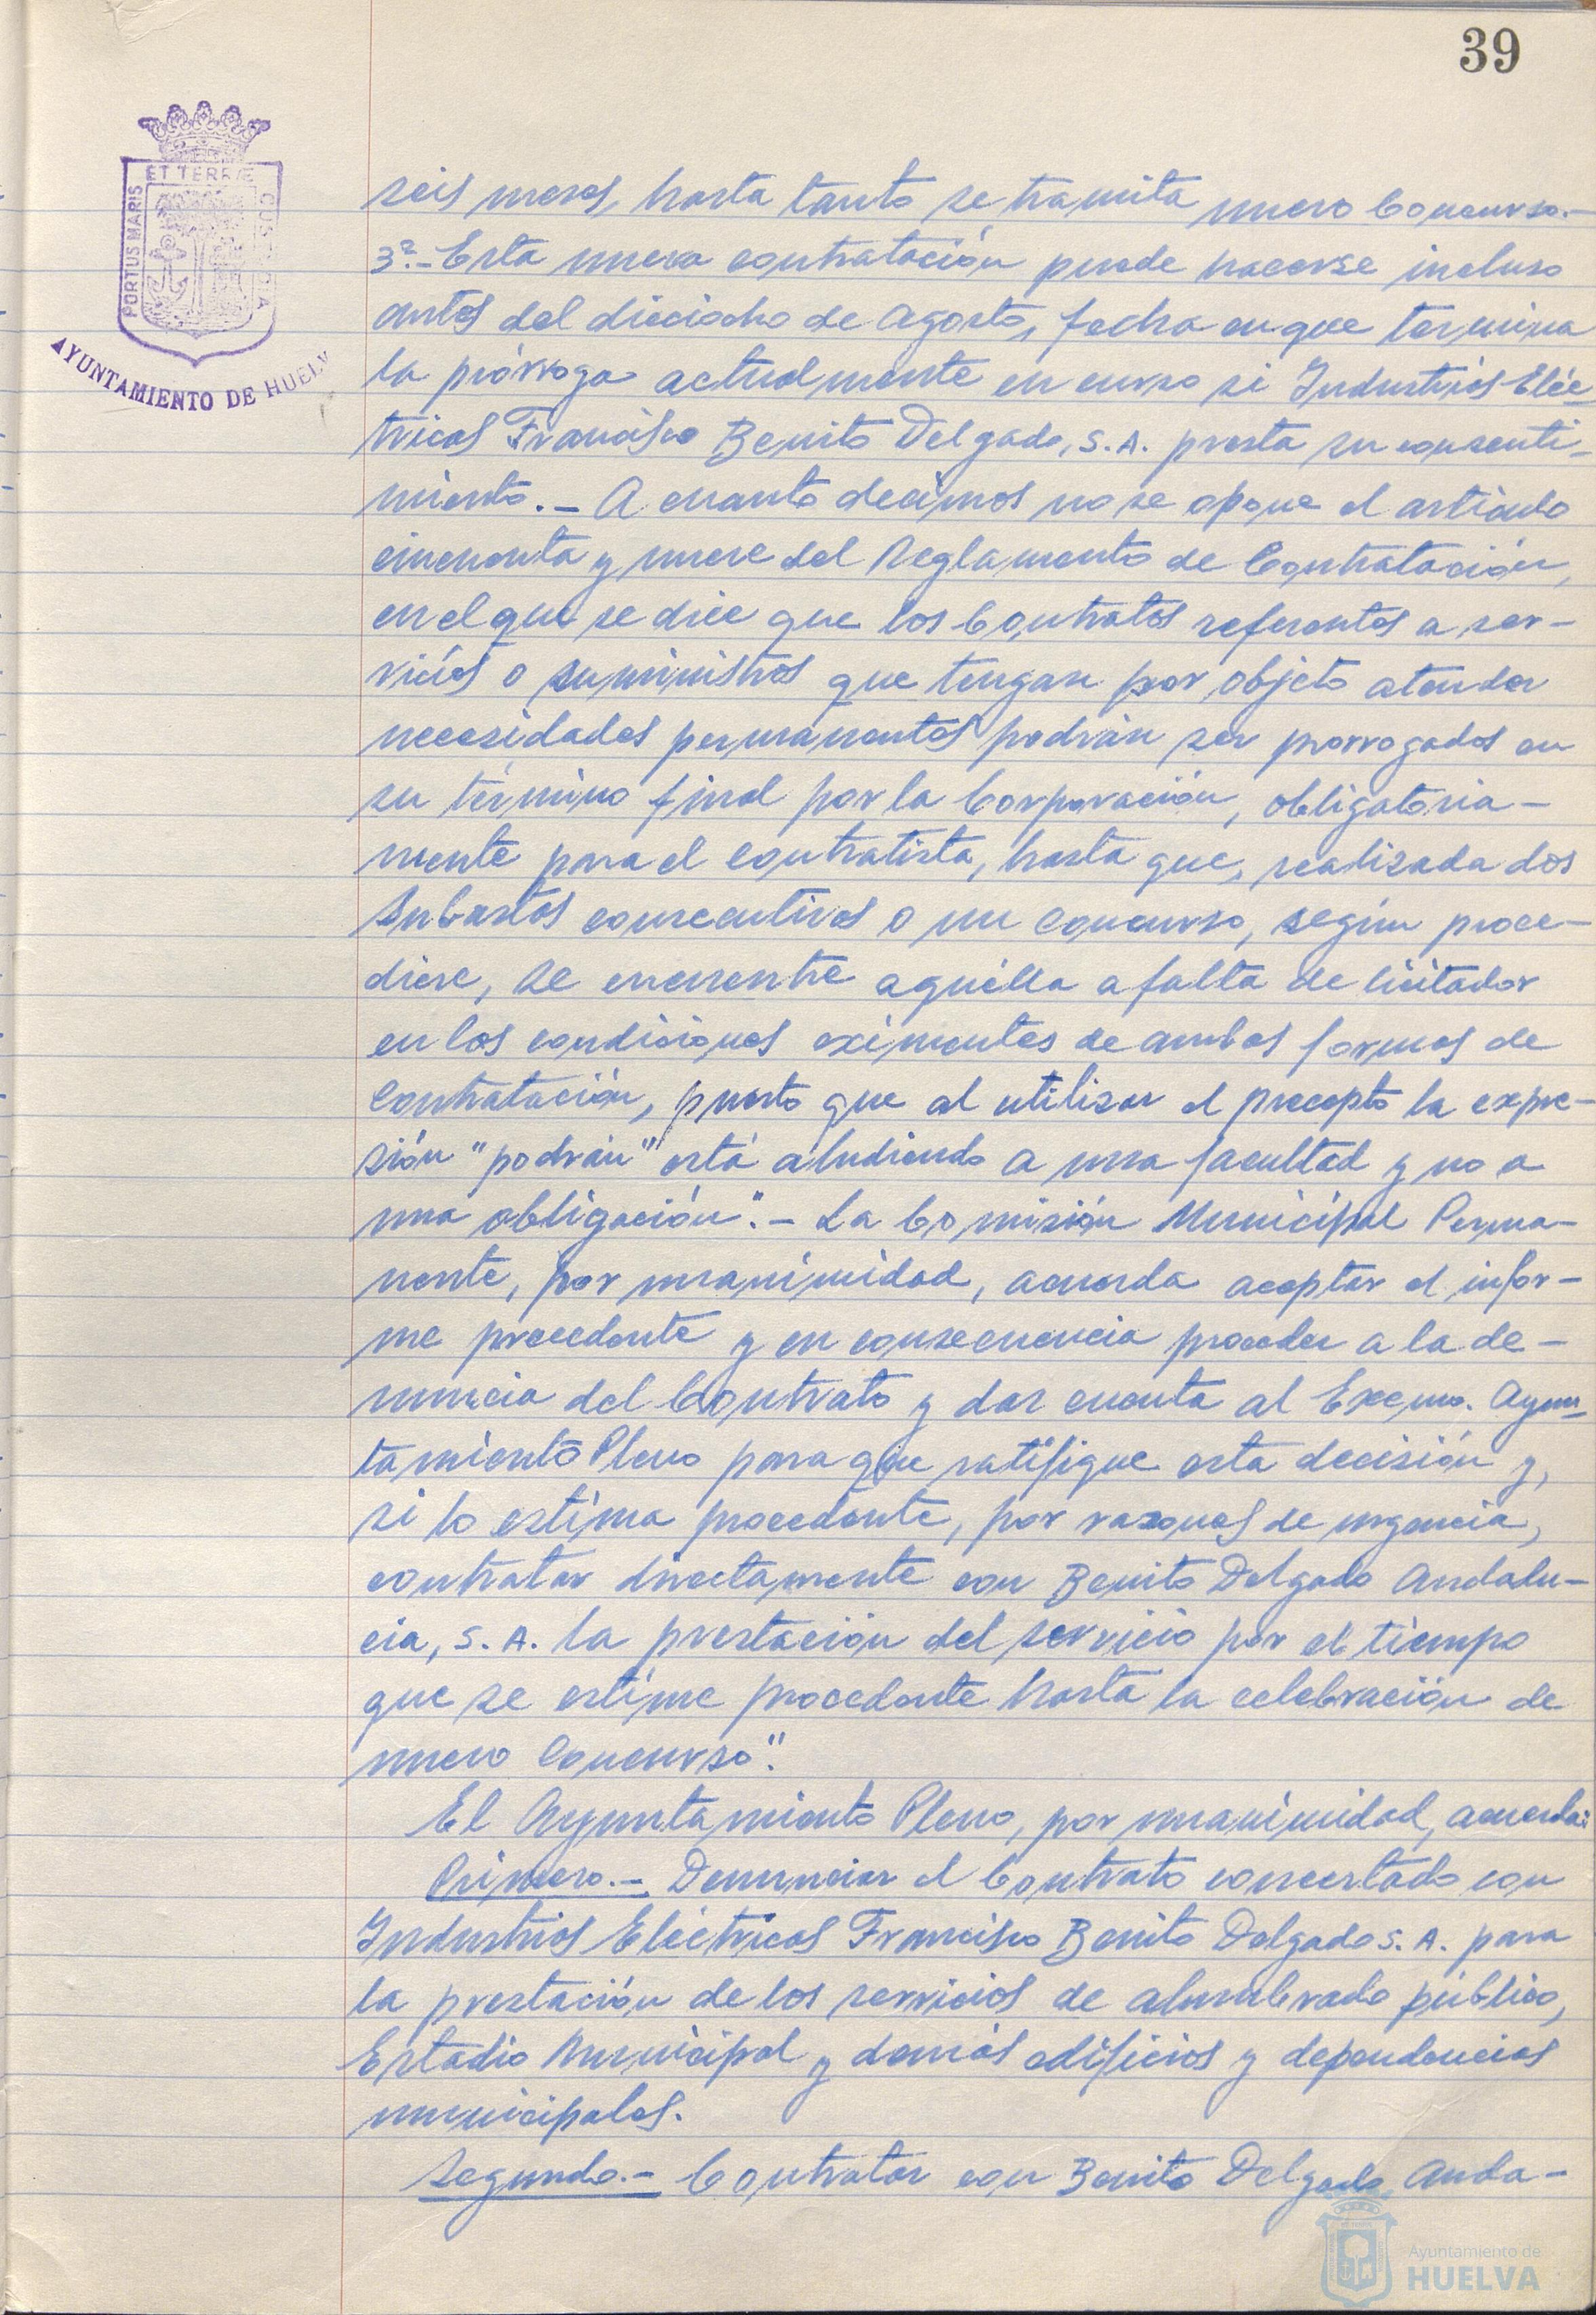 39
ET TERRÆ
PORTUS MARIS
CUSTODIA
AYUNTAMIENTO DE HUELV
seis meses, hasta tanto se tramita nuevo Concurso.-
3º.- Esta nueva contratación puede hacerse incluso
antes del dieciocho de Agosto, fecha en que termina
la prórroga actualmente en curso si Industrias Eléc-
tricas Francisco Benito Delgado, S.A. presta su consenti-
miento.- A cuanto decimos no se opone el artículo
cincuenta y nueve del Reglamento de Contratación,
en el que se dice que los Contratos referentes a ser-
vicios o suministros que tengan por objeto atender
necesidades permanentes podrán ser prorrogados en
su término final por la Corporación, obligatoria-
mente para el contratista, hasta que, realizada dos
Subastas consecutivas o un concurso, según proce-
diere, se encuentre aquélla a falta de licitador
en los condiciones eximentes de ambas formas de
contratación, puesto que al utilizar el precepto la expre-
sión "podrán" está aludiendo a una facultad y no a
una obligación".- La Comisión Municipal Perma-
nente, por unanimidad, acuerda aceptar el infor-
me precedente y en consecuencia proceder a la de-
nuncia del Contrato y dar cuenta al Excmo. Ayun-
tamiento Pleno para que ratifique esta decisión y,
si lo estima procedente, por razones de urgencia,
contratar directamente con Benito Delgado Andalu-
cia, S.A. la prestación del servicio por el tiempo
que se estime procedente hasta la celebración de
nuevo Concurso".
El Ayuntamiento Pleno, por unanimidad, acuerda:
Primero.- Denunciar el Contrato concertado con
Industrias Eléctricas Francisco Benito Delgado S.A. para
la prestación de los servicios de alumbrado público,
Estadio Municipal y demás edificios y dependencias
municipales.
Segundo.- Contratar con Benito Delgado Anda-
Ayuntamiento de
HUELVA